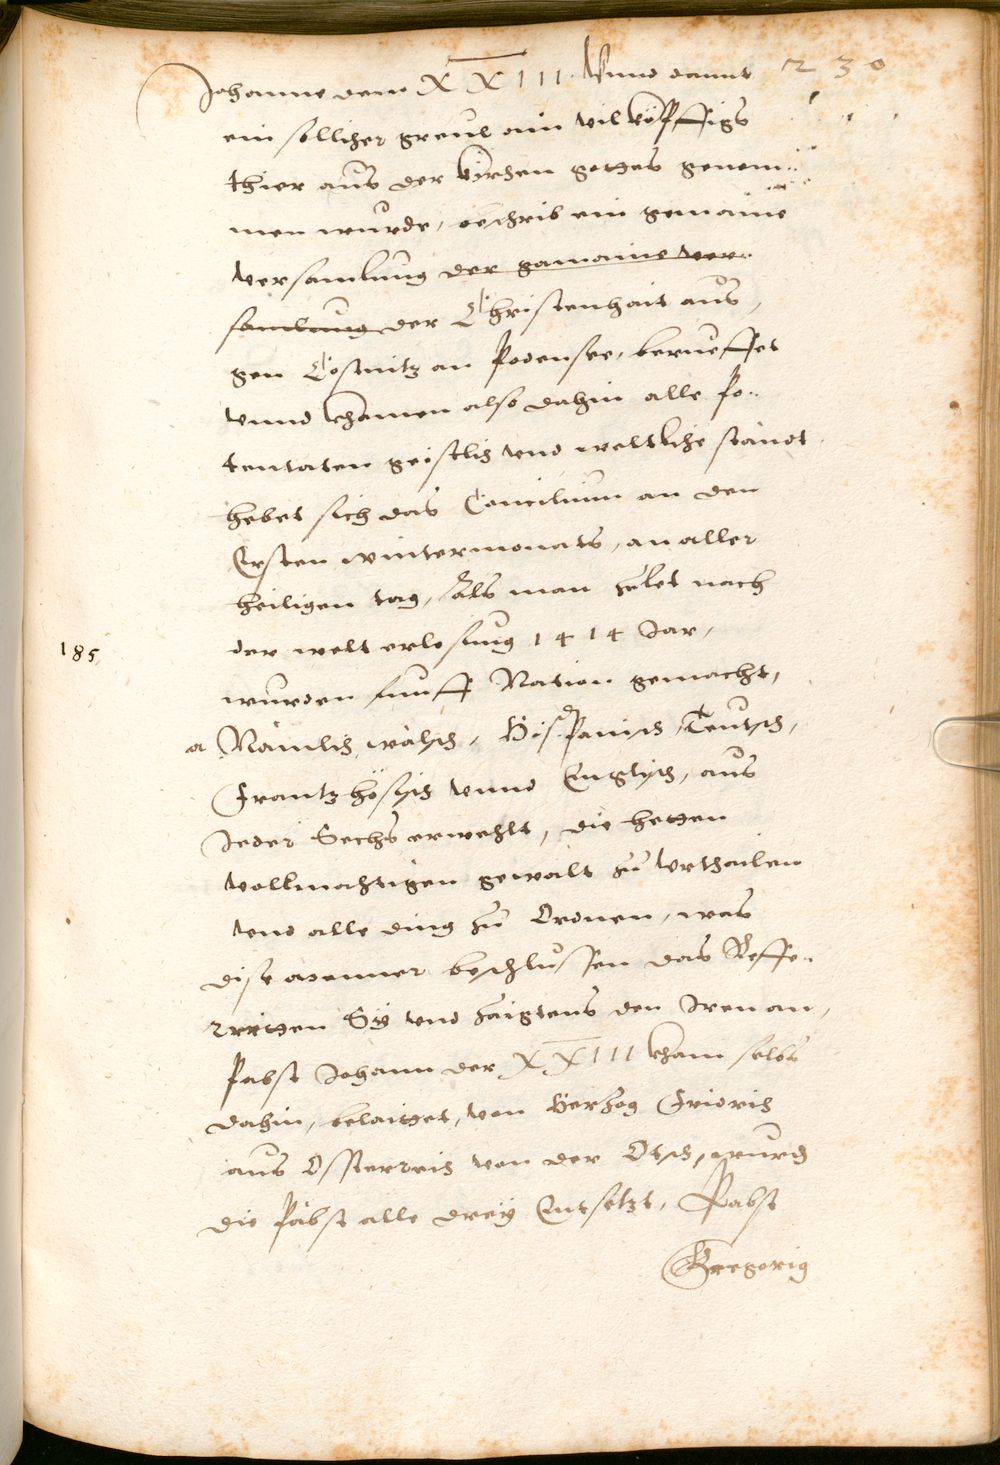 230
Johanne dem XXIII. Vnnd damit
ein sollicher greul ain vilköpffigs
thier aus der kirchen gottes genom..
men wurde, beschrib ein gemaine
versamlung der gamaine ver..
samlung der Christenhait aus,
gen Costnitz an Podensee, berueffet
vnnd khamen also dahin alle Po..
tentaten geistlich vnd weltliche ständt
hebet sich das Concilium an den
Ersten wintermonats, an aller
heiligen tag, als man zelet nach
der welt erlosung 1414 Jar,
185
wurden funff Nation gemacht,
a Nämlich wälsch, Hispanisch, Teutsch,
Frantzhösisch vnnd Englisch, aus
Jeder Sechs erwehlt, die hetten
vollmachtigen gewalt zu vrthailen
vnd alle ding zu Ordnen, was
dise menner beschlussen das Reffe..
rirtten Sy vnd zaigtens den Iren an,
Pabst Johann der XXIII kham selbs
dahin, belaittet, von Herzog Fridrich
aus Osterreich von der Etsch, wurdn
die Päbst alle dreÿ Entsetzt, Pabst
Gregorig